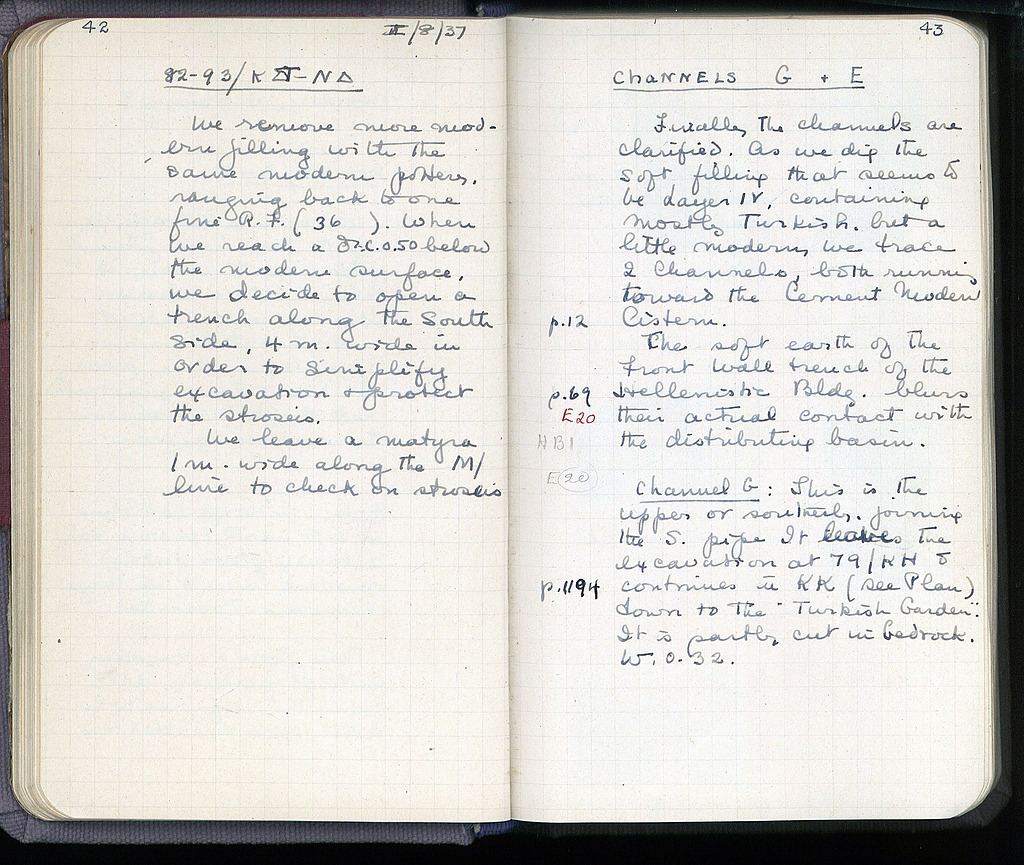 42
II/8/37
82-93/K ΣT-NΔ
We remove more mod-
ern filling with the
same modern pottery,
ranging back to one
fine R.F. (36 ). When
we reach a 0.50 below
the modern surface,
we decide to open a
trench along the South
side, 4 m. wide in
order to simplify
excavation + protect
the stroseis.
We leave a matyra
1 m. wide along the M/
line to check on stroseis
43
CHANNELS G + E
Finally, the channels are
clarified. As we dig the
soft filling that seems to
be Layer IV, containing
mostly Turkish, but a
little modern, we trace
2 channels, both running
toward the Cement Modern
p.12 Cistern.
The soft earth of the
Front Wall trench of the
p.69 Hellenistic Bldg. blurs
E20 their actual contact with
HB1 the distributing basin.
E(20) Channel G: This is the
upper or southerly, joining
the S. pipe It leaves the
excavation at 79/KH &
p.1194 continues in KK (see Plan)
down to the "Turkish Garden".
It is partly cut in bedrock.
W. 0.32.